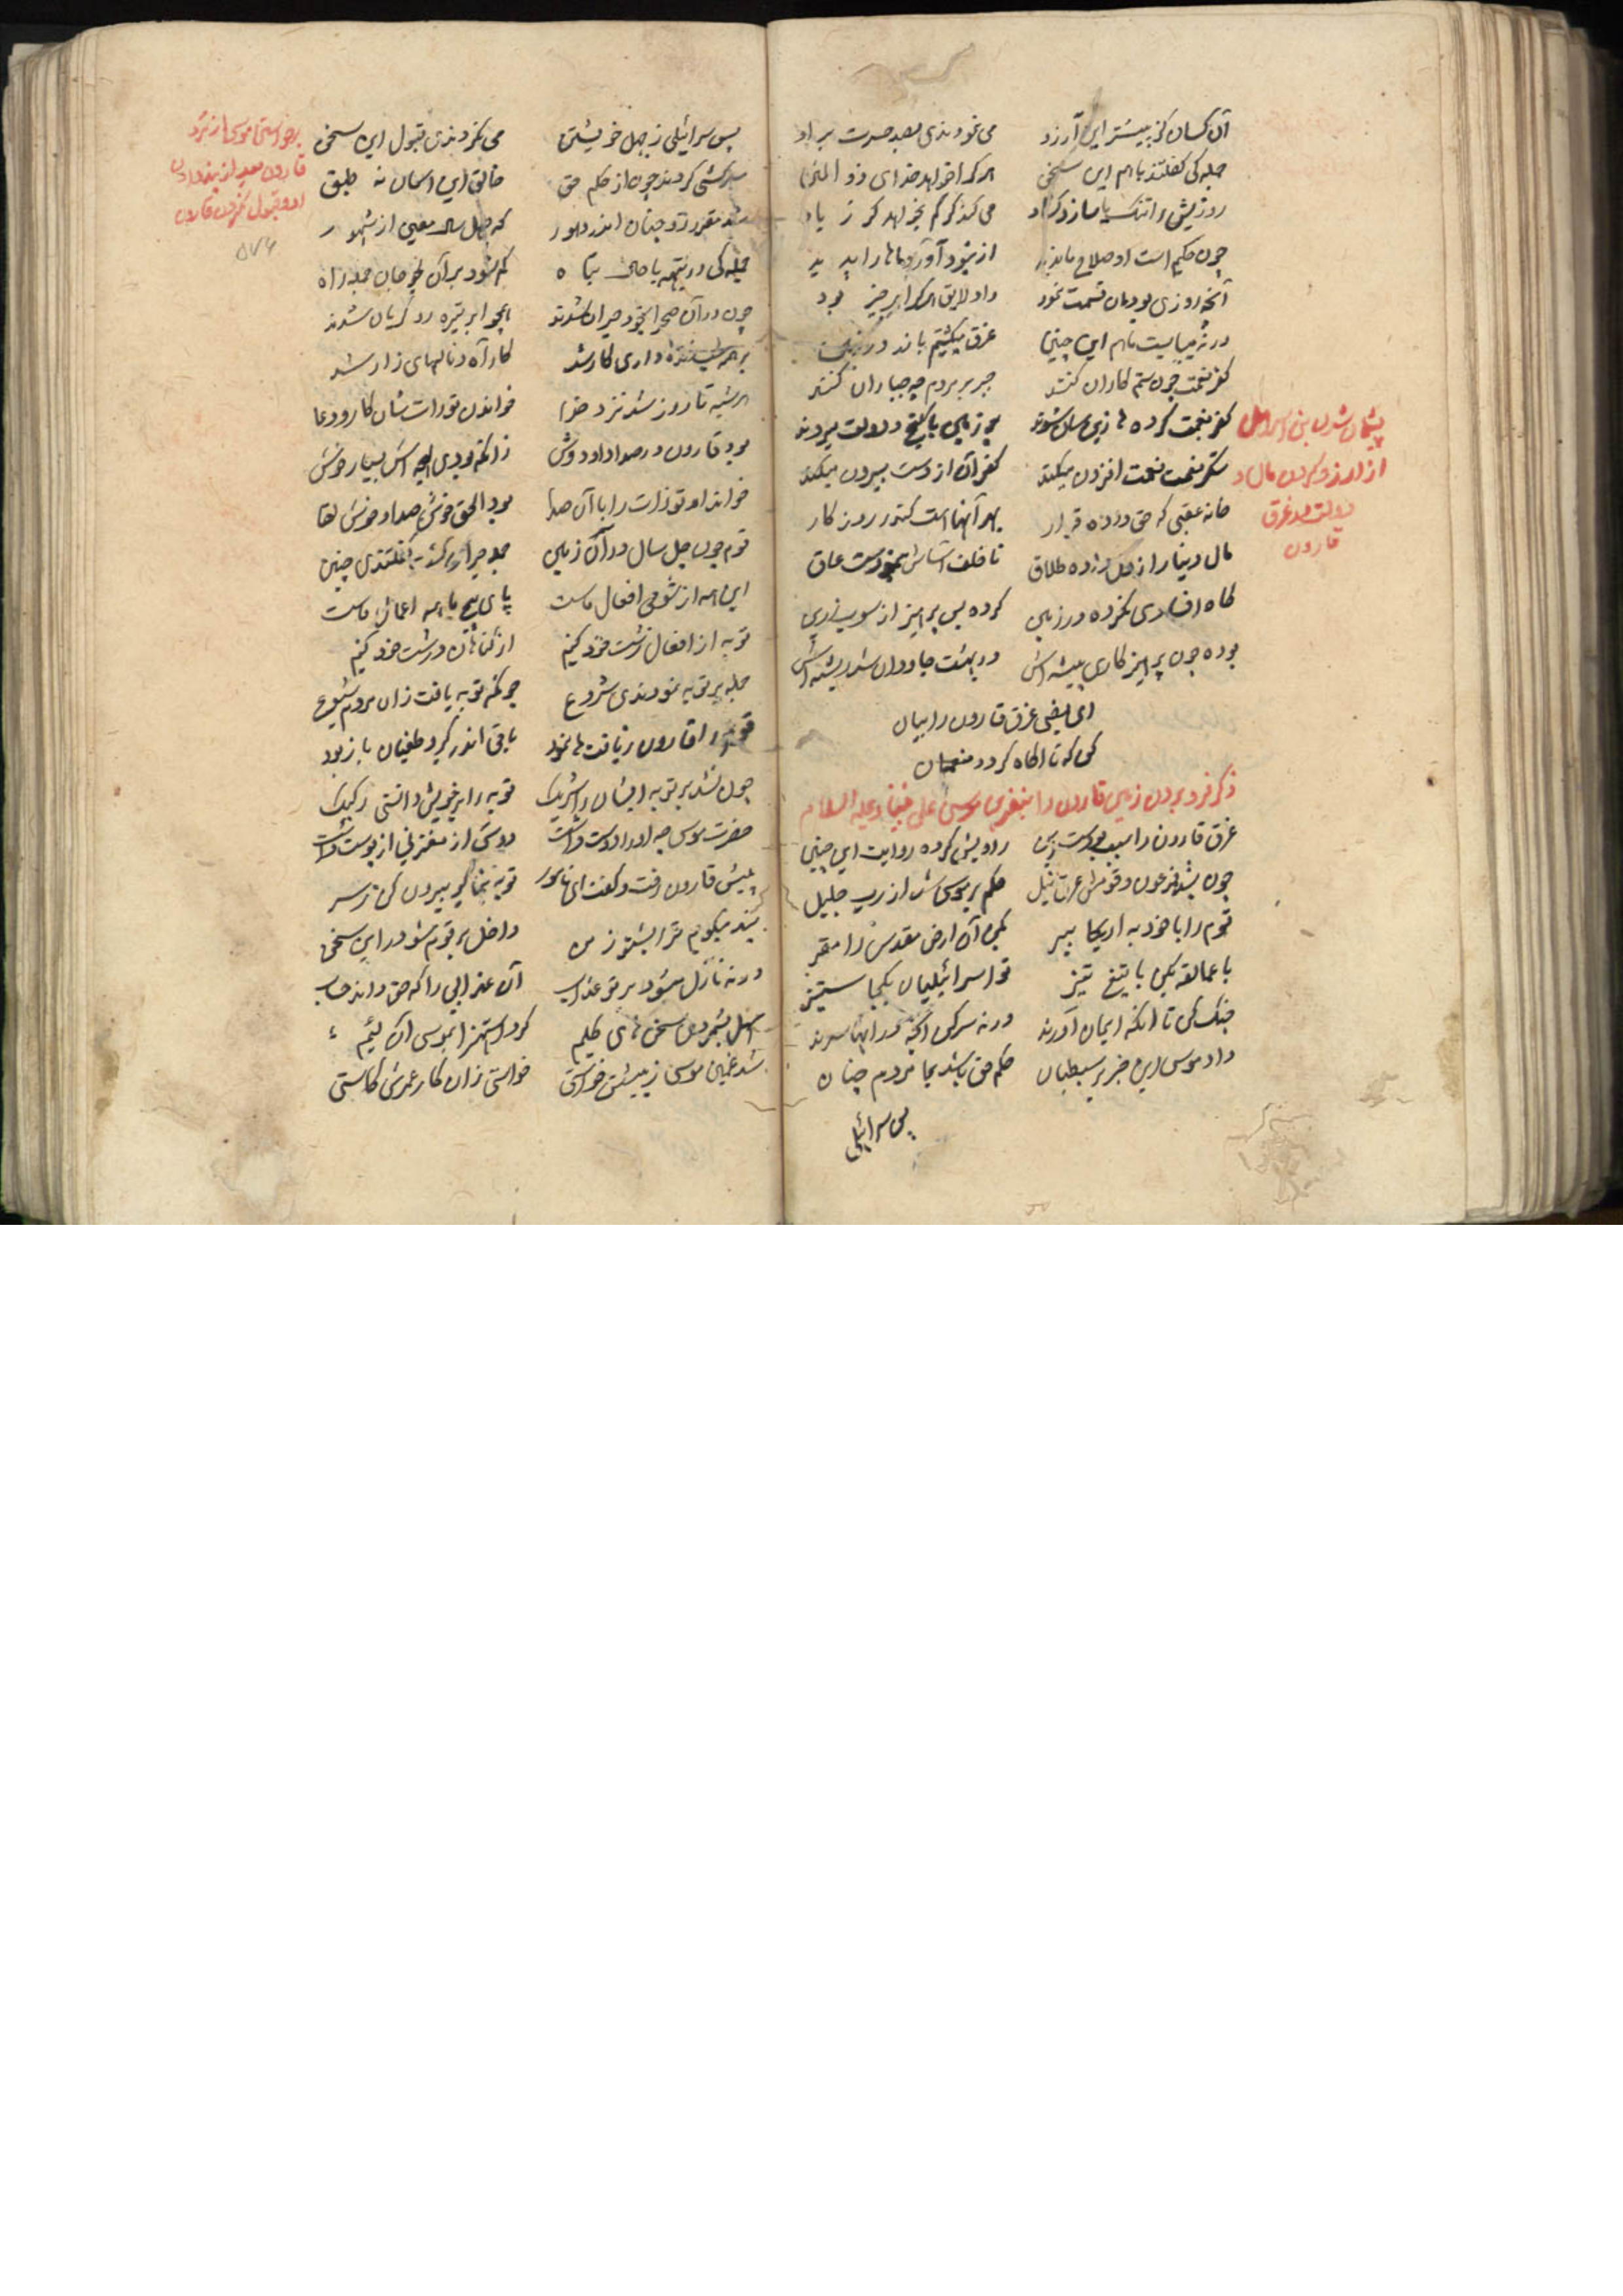 آن کسان کز بیشتر این آرزو می نمودندی بصد حسرت بر او
جمله کی گفتند با هم این سخن هر کرا خواهد خدای ذو المنن
روزیش را تنگ یا سازد گشاد می کند کر کم بخواهد کر زیاد
چون حکیم است او صلاح ما بدید از نبود آورد ماها را پدید
آنچه روزی بودمان قسمت نمود داد لایق هر کرا هر چیز بود
ورنه میبایست ما هم این چنین غرق میگشتیم باند در زمین
کفر نعمت چون ستم کاران کنند جبر بر مردم چه جباران کنند
کفر نعمت کرده ها زین سان شوند در زمین با گنج و دولت میروند
شکر نعمت نعمت افزون میکند کفر آن از دست بیرون میکند
خانه عقبی که حق داده قرار بهر آنها است کندر روزگار
مال دنیا را ز دل داده طلاق نا خلف
گاه افسادی نکرده در زمین کرده پس پرهیز از سوب زرین
بوده چون پرهیزکاری پیشه اش در بهشت جاودان شد ریشه اش
ای فیضی غرق قارون را بیان
کن که تا آگاه گردد منعمان
ذکر فرو بردن زمین قارون را بنفرین موسی علی نبینا و علیه السلام
غرق قارون را سبب بوده است این راویش کرده روایت این چنین
چون بشد فرعون و قومش غرق نیل حکم بر موسی شد از رب جلیل
قوم را با خود به اریحا ببر کن آن ارض مقدس را مقر
با عمالقه بکن با تیغ تیز تو اسرائیلیان یکجا ستیز
جنگ کن تا آنکه ایمان آورند ورنه سر کن آنچه در آنها سرند
داد موسی این خبر بر سبطیان حکم حق باشد بما مردم چنان
پس سرائیلی
پشیمان شدن بنی اسرائیل
از آرزو کردن مال و
دولت بعد غرق
قارون
پس سرائیلی ز جهل خویشتن می نکردندی قبول این سخن
سرکشی کردند چون از حکم حق خالق این آسمان نه طبق
شد مقرر توجنان اندر دهور که چهل سال معین از شهور
جمله کی در تیه با حال تباه گم شود بر آن لجوجان جمله راه
چون در آن صحرا بخود حیران شدند همچو ابر تیره رو گریان شدند
بر همه شب نذاره داری کار شد کار آه و نالهای زار شد
هر شبه تا روز شد نزد خدا خواندن تورات شان کار و دعا
بود قارون در صدا داود وش زانکه بودی لهجه اش بسیار خوش
خواند او تورات را با آن صدا بود الحق خوش صدا و خوش لقا
قوم چون چل سال در آن زمین جمله حیران گشته گفتندی چنین
این همه از شومی افعال ماست پای پیچ ما همه اعمال ماست
توبه از افعال زشت خود کنیم از گناهان درشت خود کنیم
جمله بر توبه نمودندی شروع چونکه توبه یافت زان مردم شیوع
توبه را قارون زیافت ها نمود باقی اندر گرد طغیان باز بود
چون نشد بر توبه ایشان را شریک توبه را بر خویش دانستی رکیک
حضرت موسی چه او را دوست داشت دوستی از مغز نی از پوست داشت
پیش قارون رفت و گفت ای نامور توبه بنما کبر بیرون کن ز سر
پند میگویم ترا بشنو ز من داخل بر قوم شو در این سخن
ورنه نازل میشود بر تو عذاب آن عذابی را که حق داند حساب
سهل بشمردی سخن های کلیم کرد استهزا بموسی آن لئیم
شد غمین موسی ز پیشش خواستی خواستی زان کار عمرش کاستی
برخواستن موسی از نزد
قارون بعد از پند دادن
او و قبول نکردن قارون